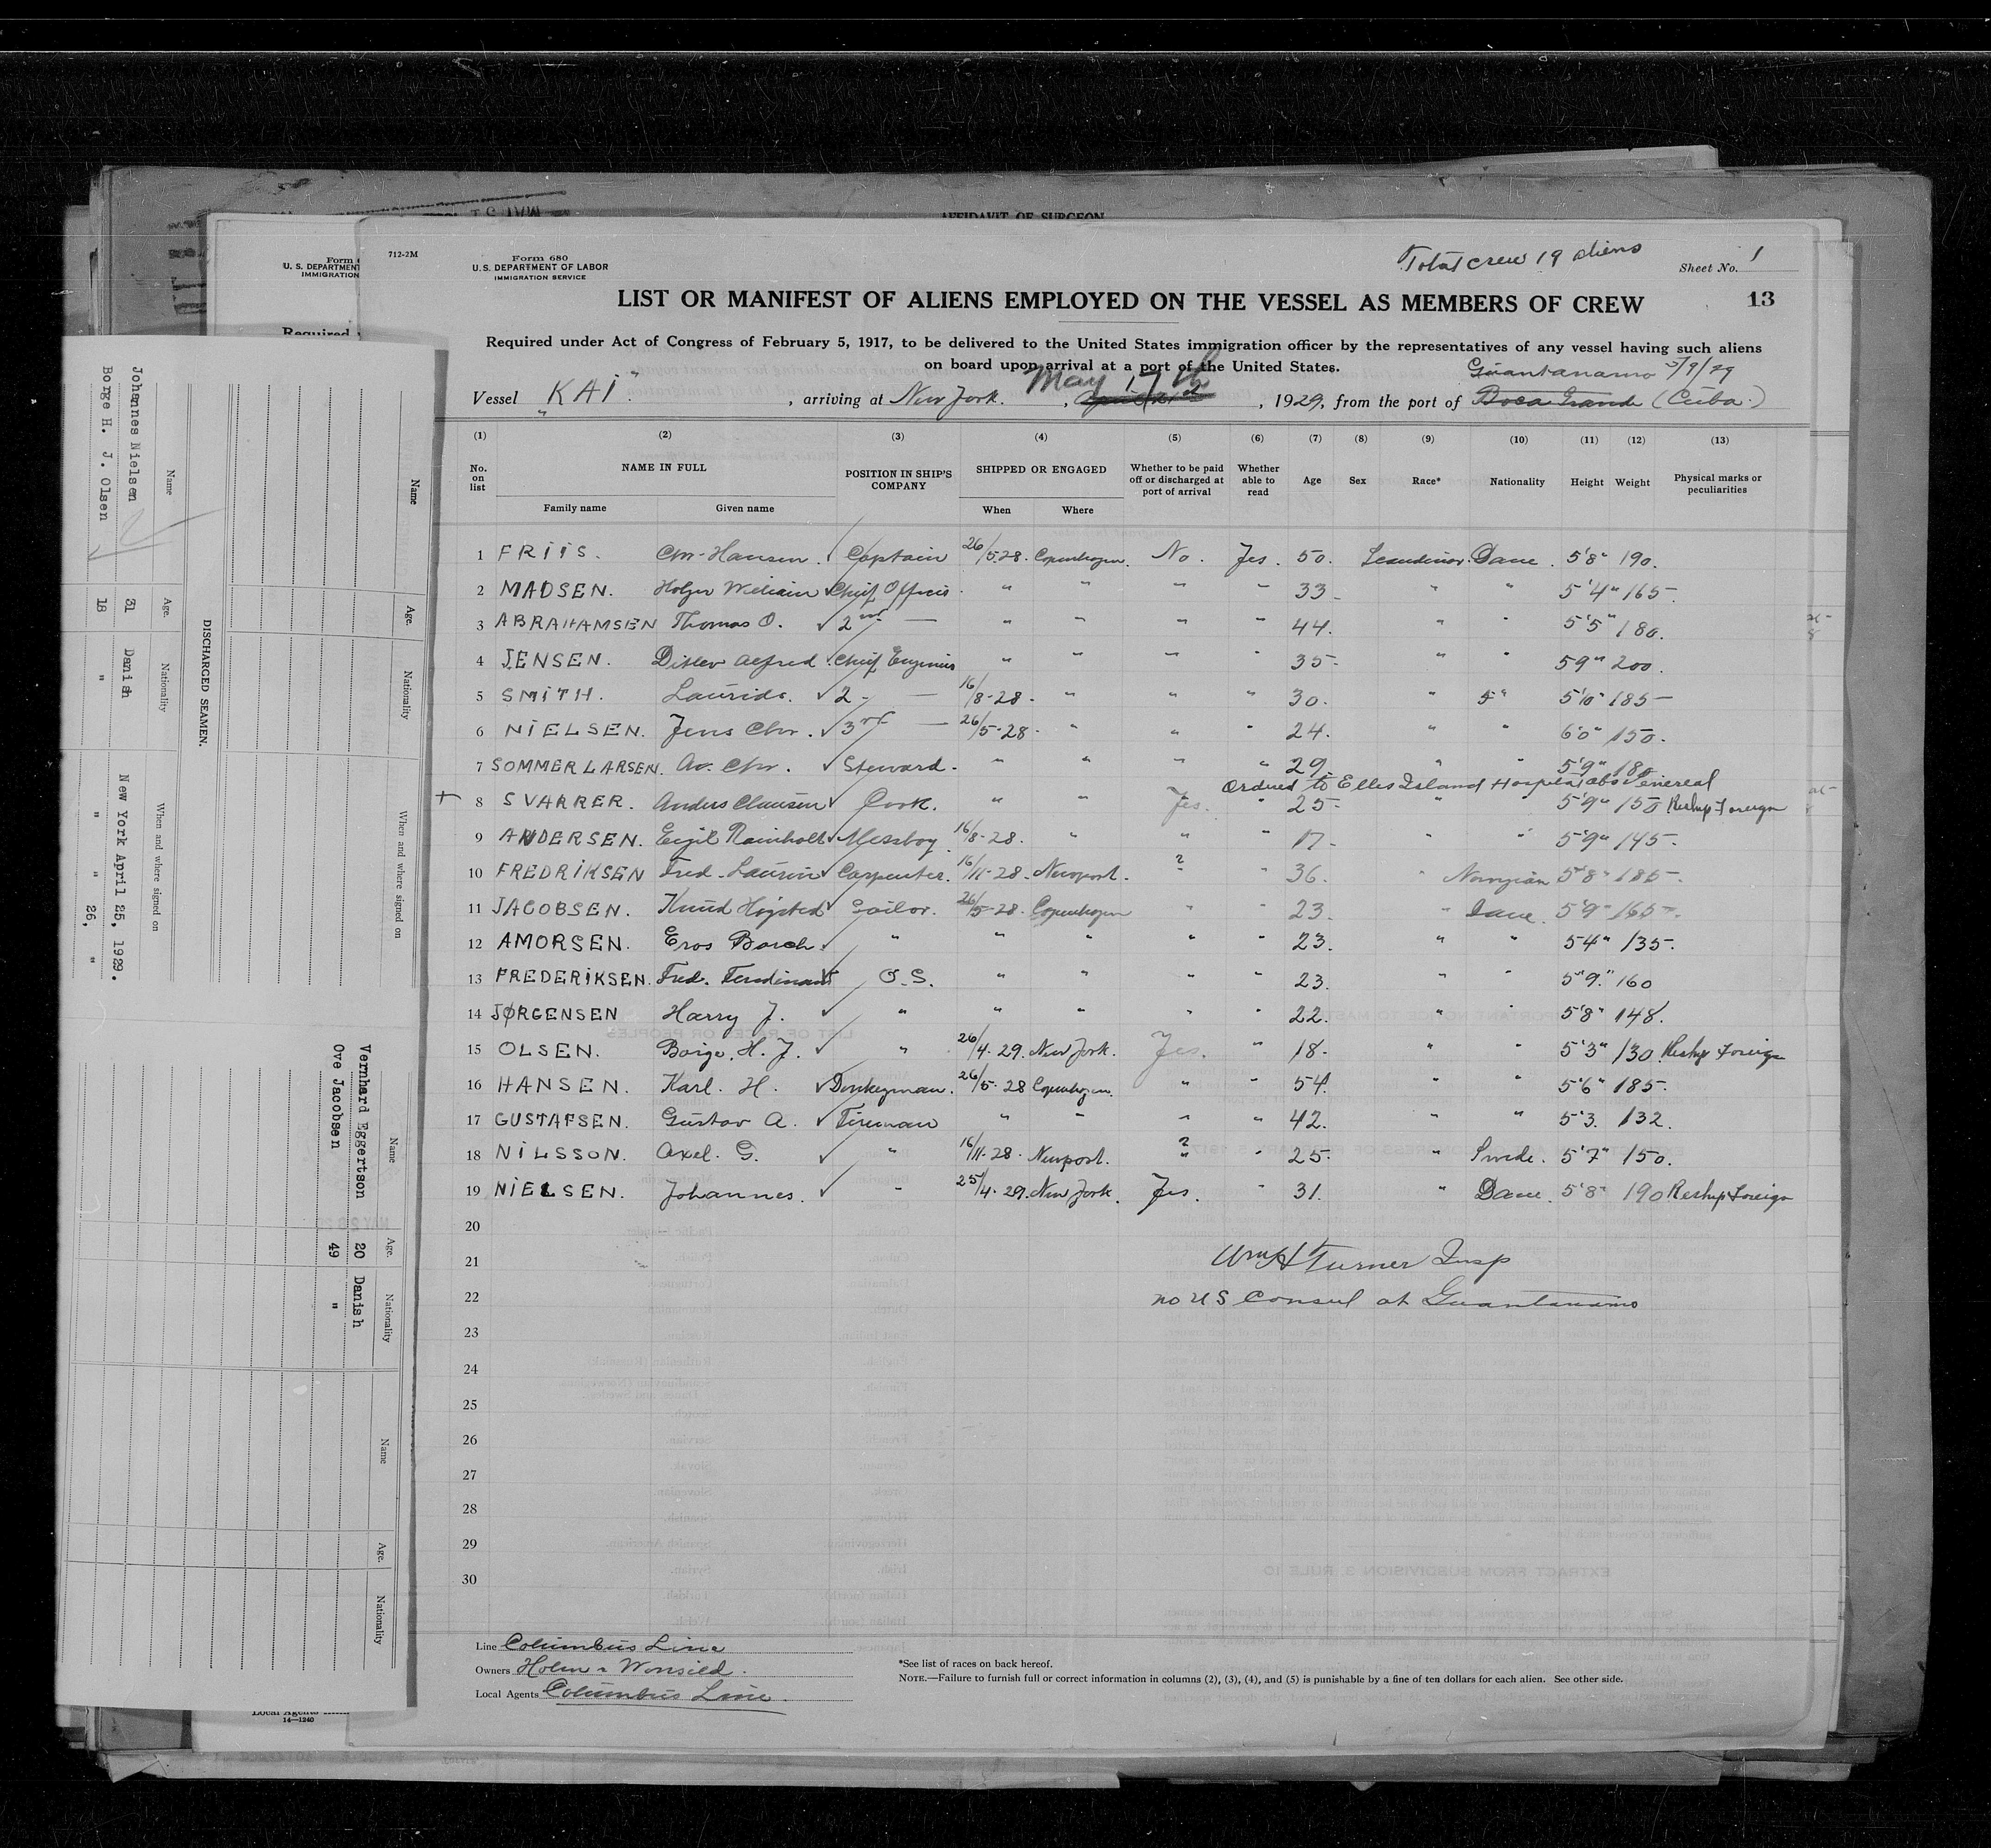 AFFIDAVIT OF SURGEON
712-2M
Form 680
U. S. DEPARTMENT OF LABOR
IMMIGRATION SERVICE
Total crew 19 aliens
Sheet No. 1
LIST OR MANIFEST OF ALIENS EMPLOYED ON THE VESSEL AS MEMBERS OF CREW
13
Required under Act of Congress of February 5, 1917, to be delivered to the United States immigration officer by the representatives of any vessel having such aliens
on board upon arrival at a port of the United States.
Guantanamo 5/9/29
May 17th
Vessel "KAI", arriving at New York, April 21st, 1929, from the port of Boca Grande (Cuba.)
(1) (2) (3) (4) (5) (6) (7) (8) (9) (10) (11) (12) (13)
No. on list NAME IN FULL POSITION IN SHIP'S COMPANY SHIPPED OR ENGAGED Whether to be paid off or discharged at port of arrival Whether able to read Age Sex Race* Nationality Height Weight Physical marks or peculiarities
Family name Given name When Where
1 FRIIS. Chr. Hansen. Captain 26/5.28. Copenhagen. No. Yes. 50. Scandinav. Dane. 5'8" 190.
2 MADSEN. Holger William Chief Officer. " " " " 33 " " 5'4" 165
3 ABRAHAMSEN Thomas O. 2nd — " " " " 44. " " 5'5" 180.
4 JENSEN. Ditlev Alfred. Chief Engineer " " " " 35 " " 5 9" 200.
5 SMITH. Laurids. 2 - — 16/8-28. " " " 30. " " 5'10" 185
6 NIELSEN. Jens Chr. 3rd — 26/5-28. " " " 24. " " 6'0" 150.
7 SOMMER LARSEN. Av. Chr. Steward. " " " " 29. " " 5'9" 180
Ordered to Ellis Island Hospital obs venereal
8 SVARRER. Anders Clausen Cook. " " Yes. " 25 " " 5'9" 150 Reship Foreign
9 ANDERSEN. Egil Rainholt Messboy. 16/8-28. " " " 17 " " 5'9" 145.
10 FREDRIKSEN Fred. Laurin Carpenter. 16/11-28. Newport. ? " 36. " Norvegian 5'8" 185.
11 JACOBSEN. Knud Hojsted Sailor. 26/5-28. Copenhagen " " 23. " Dane. 5'9" 165.
12 AMORSEN. Eros Borch. " " " " " 23. " " 5 4" 135.
13 FREDERIKSEN. Fred. Ferdinant O.S. " " " " 23. " " 5'9." 160
14 JØRGENSEN Harry J. " " " " " 22. " " 5'8" 148.
15 OLSEN. Borge. H. J. " 26/4. 29. New York. Yes. " 18. " " 5'3" 130. Reship Foreign
16 HANSEN. Karl. H. Donkeyman. 26/5. 28 Copenhagen. " " 54. " " 5'6" 185.
17 GUSTAFSEN. Gustav A. Fireman " " " " 42. " " 5'3. 132.
18 NILSSON. Axel. G. " 16/11-28. Newport. ? " 25. " Swede. 5'7" 150.
19 NIELSEN. Johannes. " 25/4. 29. New York. Yes. " 31. " Dane. 5'8" 190 Reship Foreign
20
21 Wm H Turner Insp
22 no US Consul at Guantanamo
23
24
25
26
27
28
29
30
Line Columbus Line
Owners Holm & Wonsild.
Local Agents Columbus Line.
*See list of races on back hereof.
NOTE.—Failure to furnish full or correct information in columns (2), (3), (4), and (5) is punishable by a fine of ten dollars for each alien. See other side.
Form
U. S. DEPARTMENT
IMMIGRATION
Required
Local Agents
14—1240
Name Age. Nationality When and where signed on
DISCHARGED SEAMEN.
Name Age. Nationality When and where signed on
Johannes Nielsen 31 Danish New York April 25, 1929.
Borge H. J. Olsen 18 " " " 26, "
Name Age. Nationality Name Age. Nationality
Vernhard Eggertson 20 Danish
Ove Jacobsen 49 "